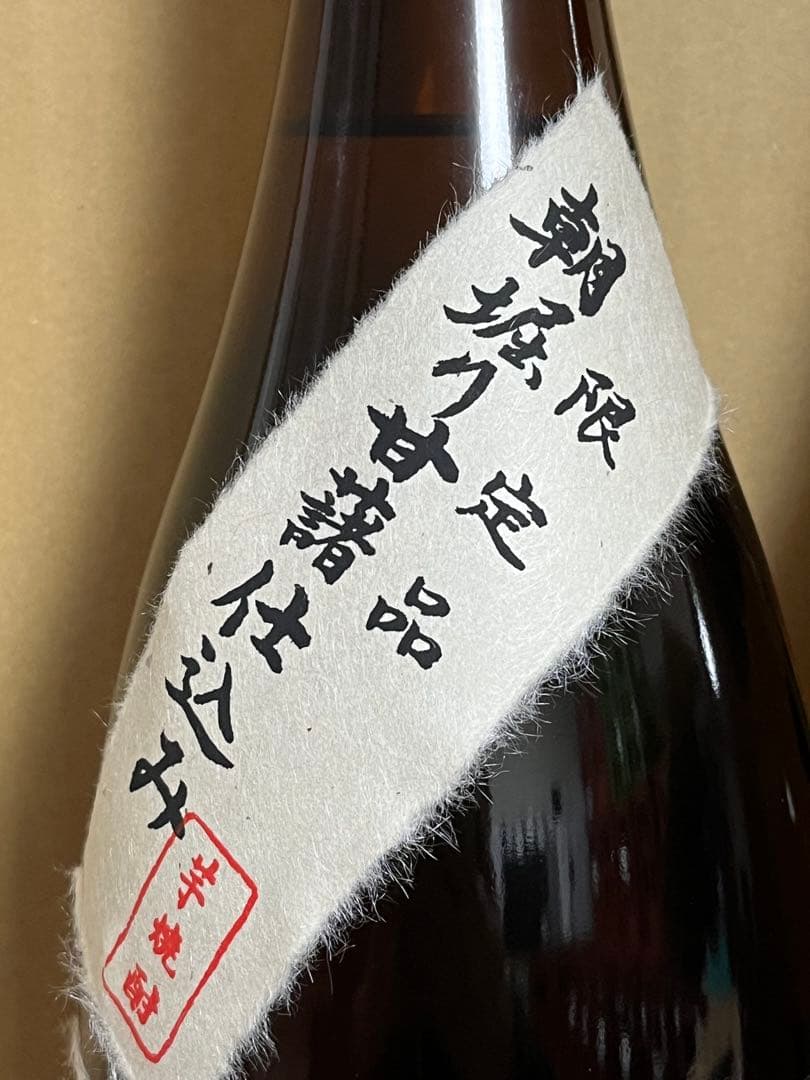 限定品
朝堀り甘藷仕込み
芋焼酎